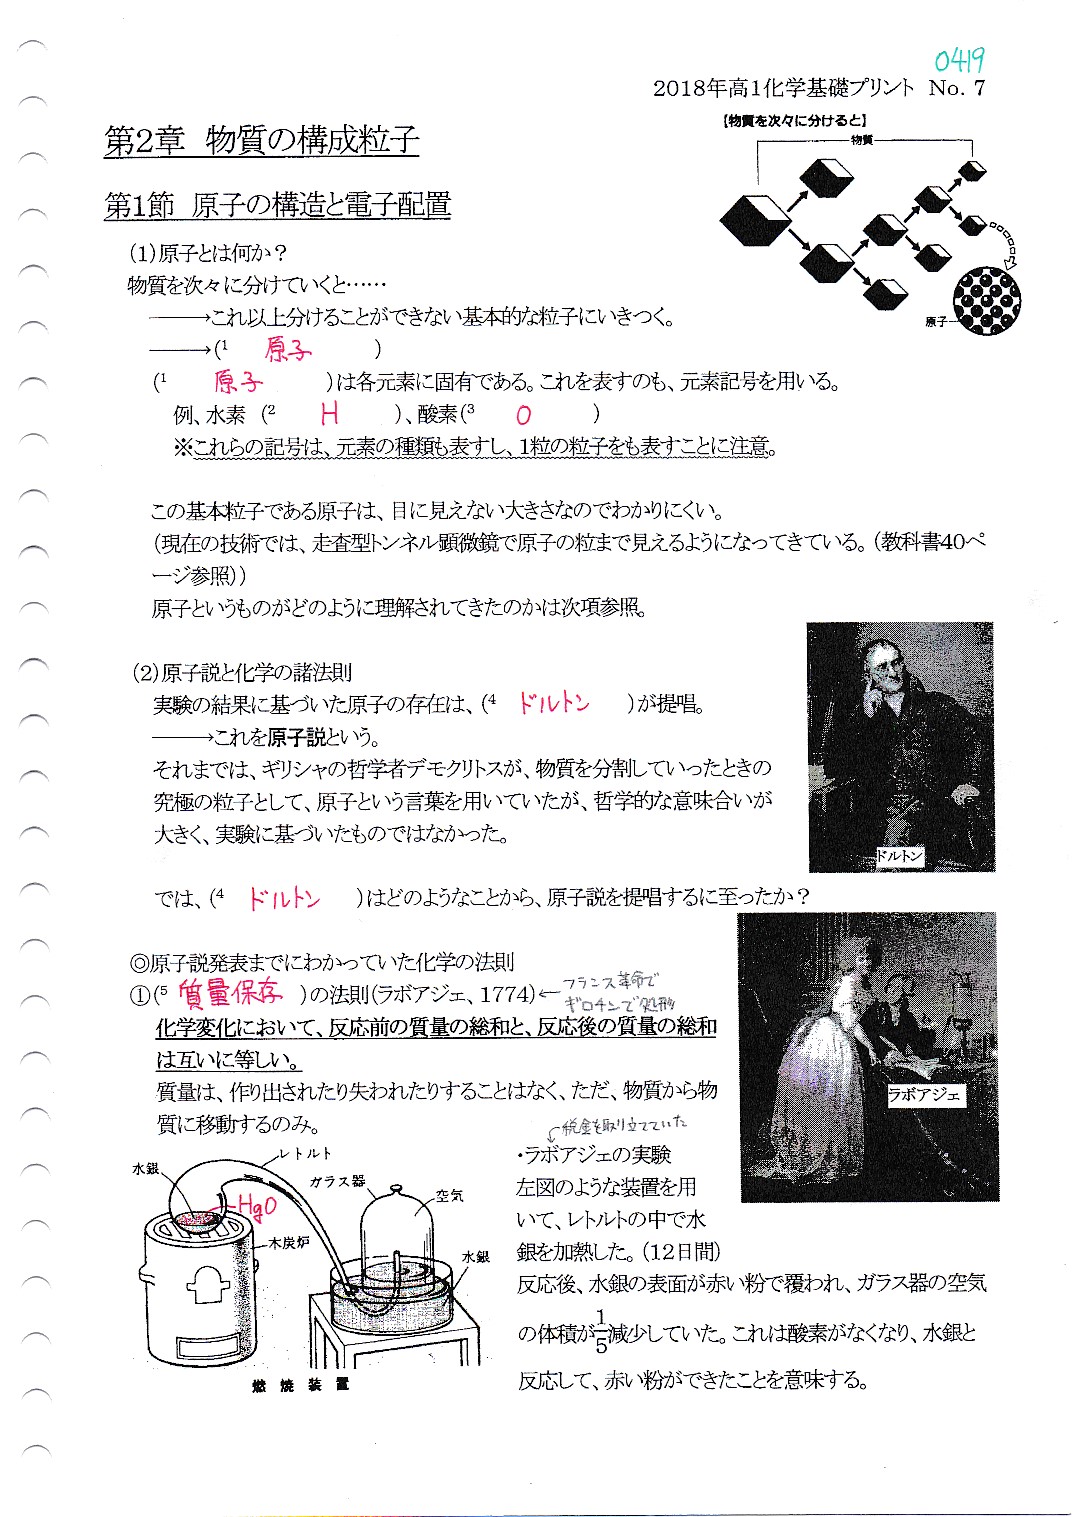 0419
2018年高1化学基礎プリント No. 7
第2章 物質の構成粒子
【物質を次々に分けると】
物質
原子
第1節 原子の構造と電子配置
(1)原子とは何か？
物質を次々に分けていくと……
———→これ以上分けることができない基本的な粒子にいきつく。
———→(¹ 原子 )
(¹ 原子 )は各元素に固有である。これを表すのも、元素記号を用いる。
例、水素 (² H )、酸素(³ O )
※これらの記号は、元素の種類も表すし、1粒の粒子をも表すことに注意。
この基本粒子である原子は、目に見えない大きさなのでわかりにくい。
(現在の技術では、走査型トンネル顕微鏡で原子の粒まで見えるようになってきている。(教科書40ペ
ージ参照))
原子というものがどのように理解されてきたのかは次項参照。
(2)原子説と化学の諸法則
実験の結果に基づいた原子の存在は、(⁴ ドルトン )が提唱。
———→これを原子説という。
それまでは、ギリシャの哲学者デモクリトスが、物質を分割していったときの
究極の粒子として、原子という言葉を用いていたが、哲学的な意味合いが
大きく、実験に基づいたものではなかった。
ドルトン
では、(⁴ ドルトン )はどのようなことから、原子説を提唱するに至ったか？
◎原子説発表までにわかっていた化学の法則
①(⁵ 質量保存 )の法則(ラボアジェ、1774)←フランス革命で
ギロチンで処刑
化学変化において、反応前の質量の総和と、反応後の質量の総和
は互いに等しい。
質量は、作り出されたり失われたりすることはなく、ただ、物質から物
質に移動するのみ。
ラボアジェ
税金を取り立てていた
・ラボアジェの実験
左図のような装置を用
いて、レトルトの中で水
銀を加熱した。(12日間)
反応後、水銀の表面が赤い粉で覆われ、ガラス器の空気
の体積が1/5減少していた。これは酸素がなくなり、水銀と
反応して、赤い粉ができたことを意味する。
水銀
レトルト
ガラス器
空気
HgO
木炭炉
水銀
燃焼装置